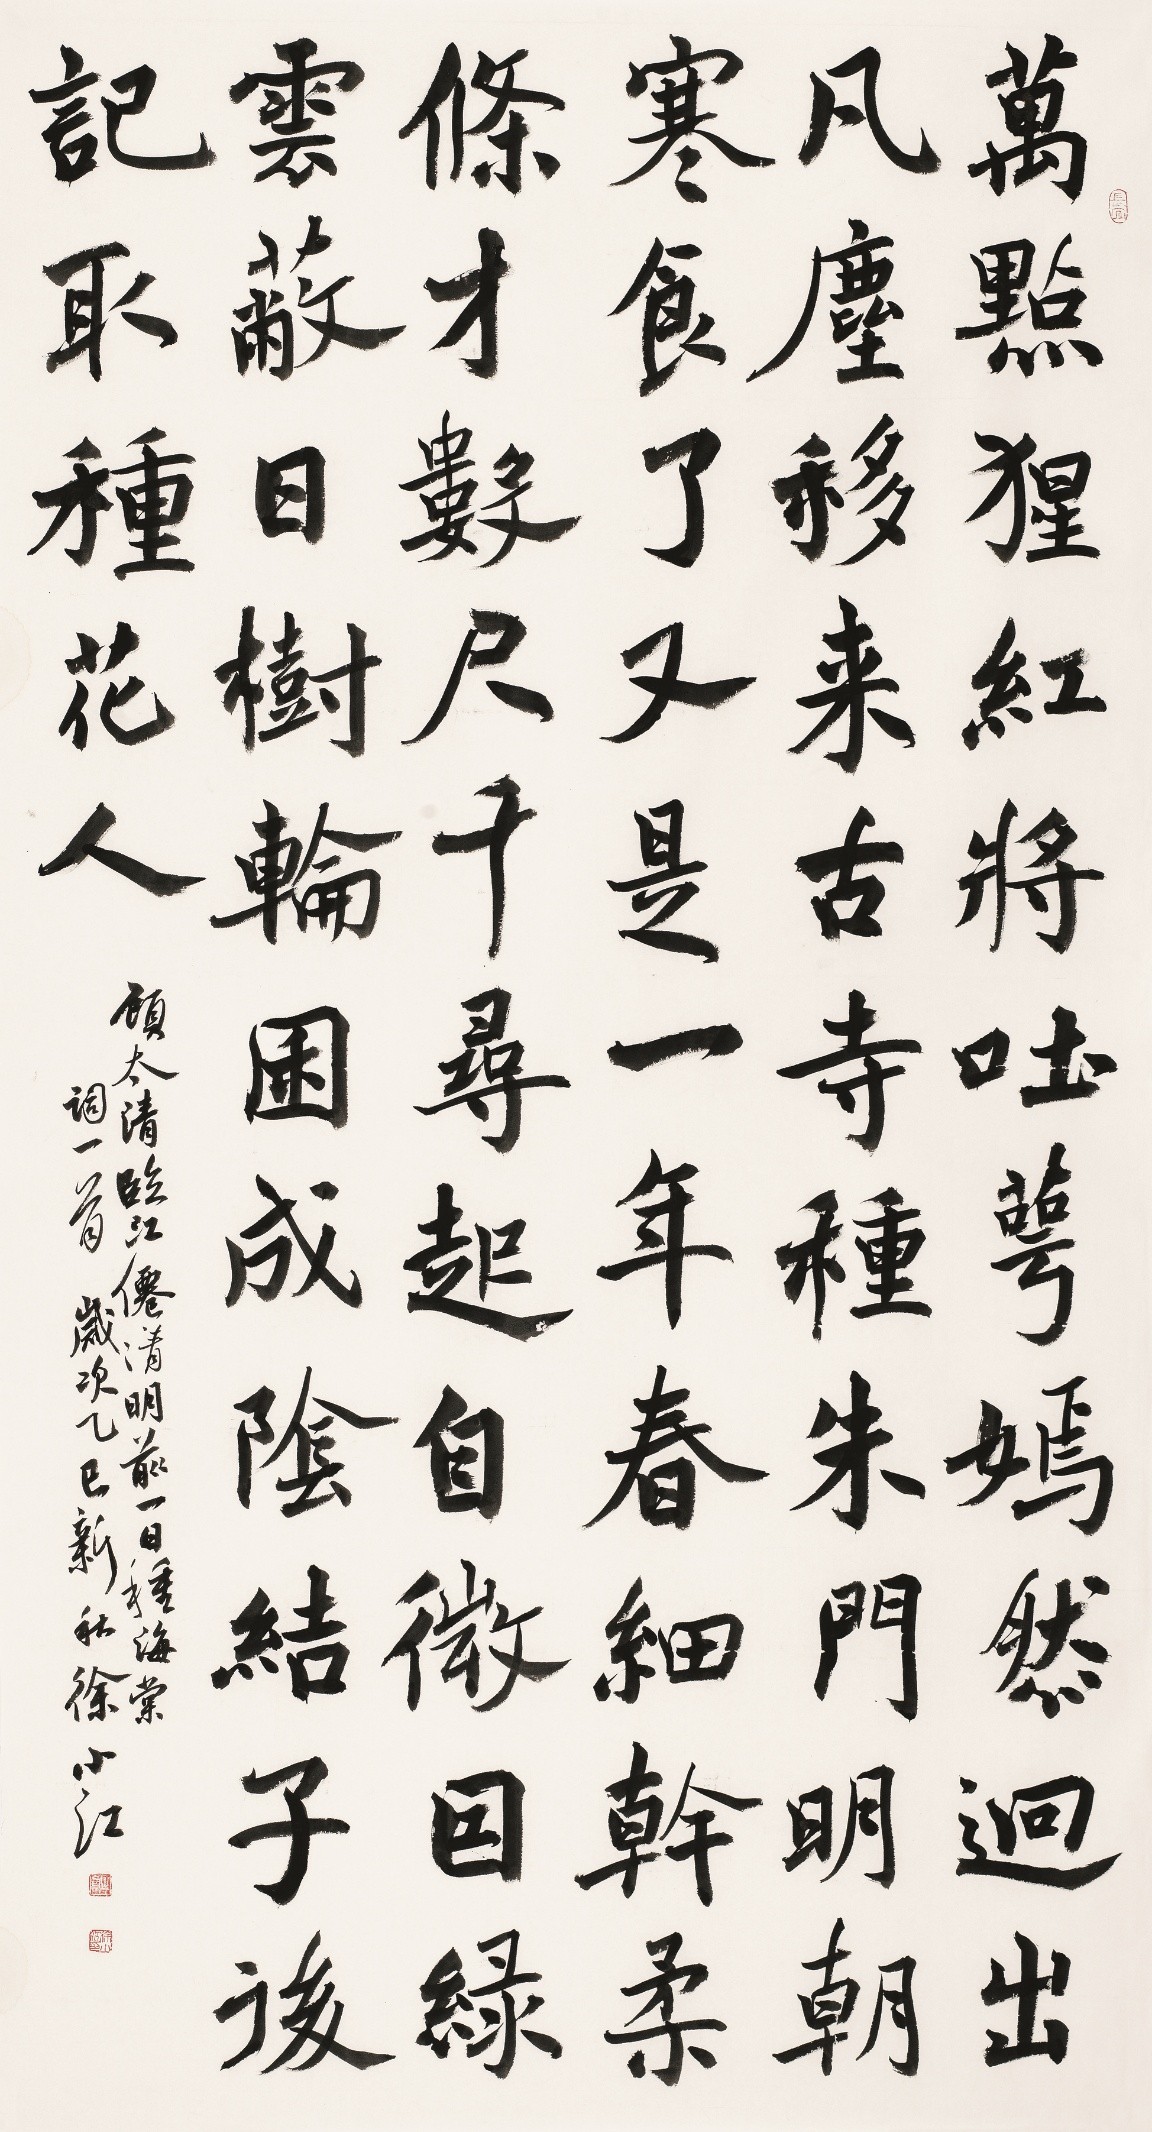 萬點猩紅將吐萼嫣然迥出
凡塵移来古寺種朱門明朝
寒食了又是一年春細幹柔
條才數尺千尋起自微因綠
雲蔽日樹輪囷成陰結子後
記取種花人
顧太清臨江僊清明前一日種海棠
詞一首歲次乙巳新秋徐小江